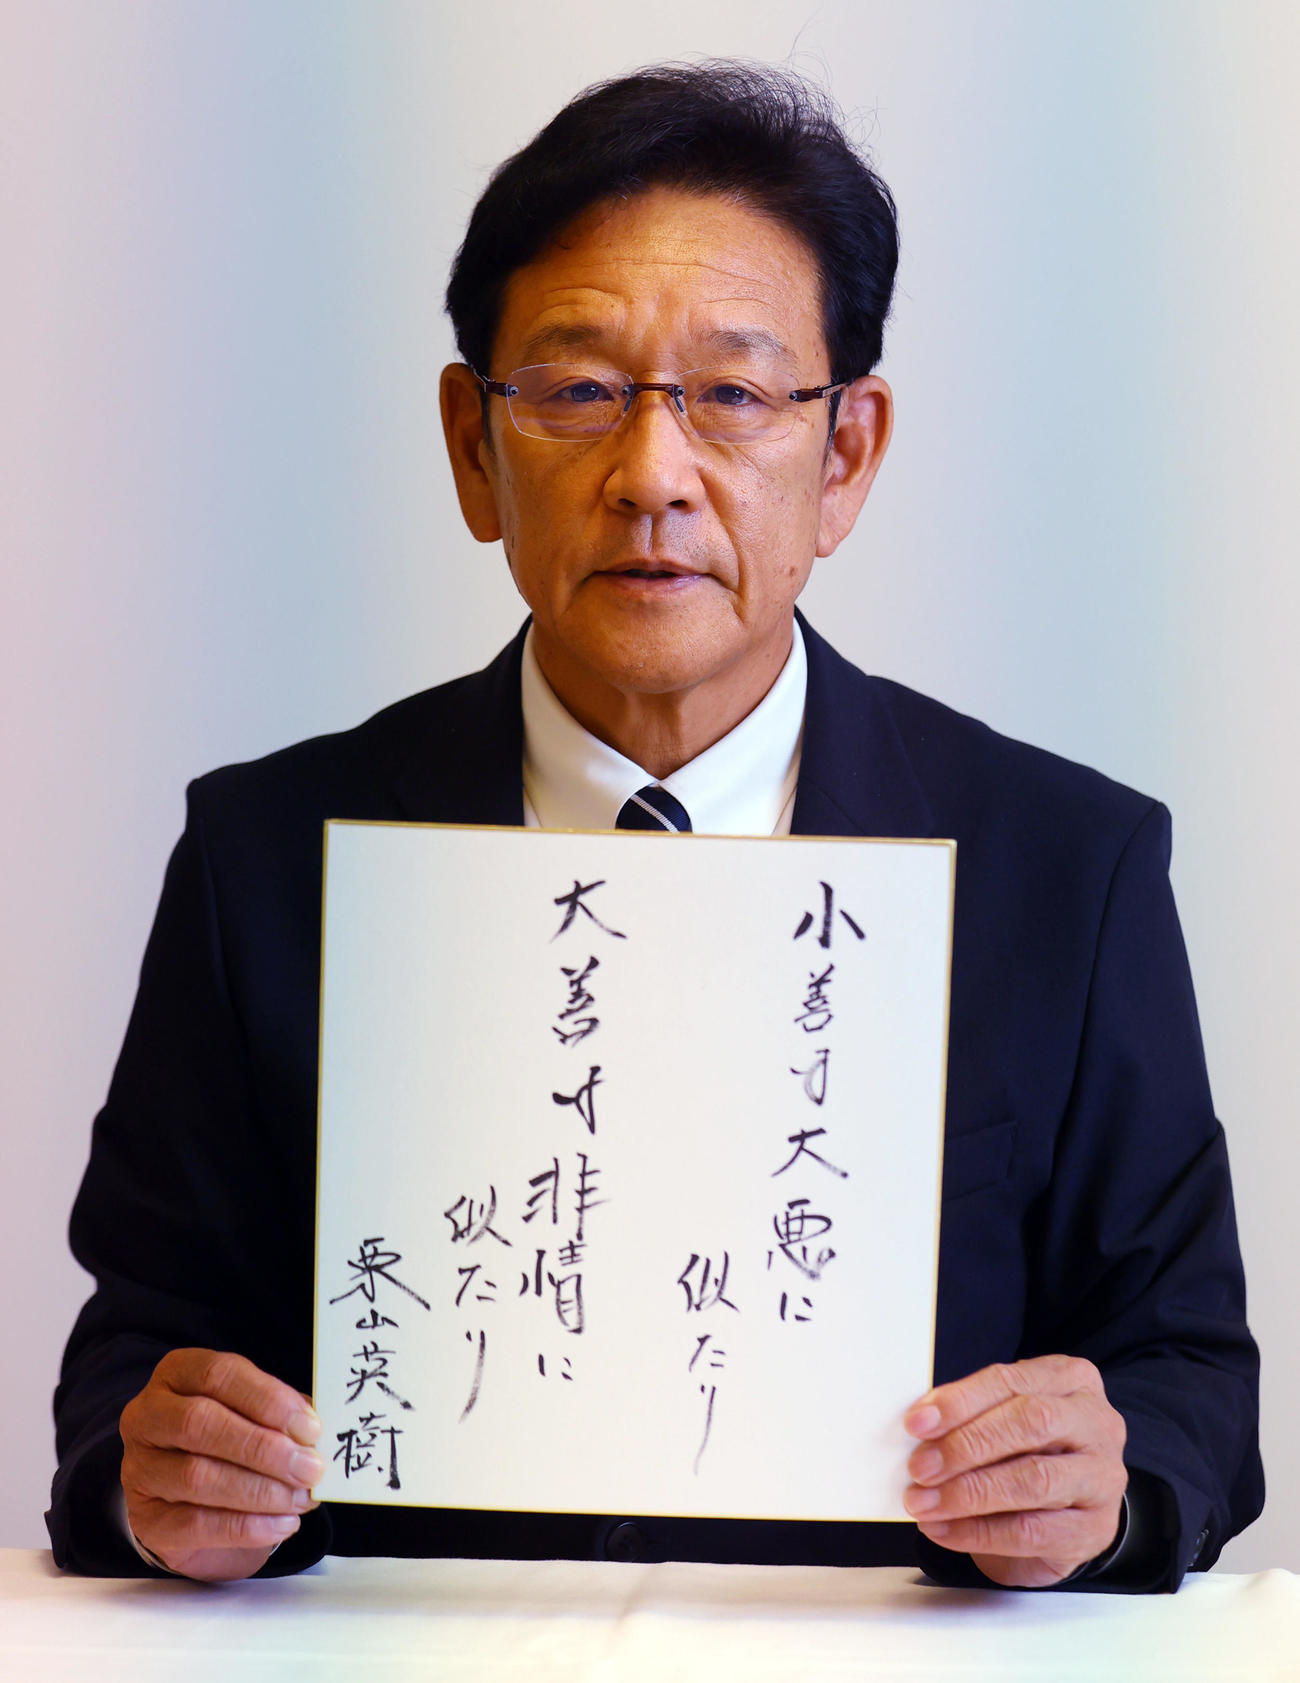 小善は大悪に
似たり
大善は非情に
似たり
栗山英樹